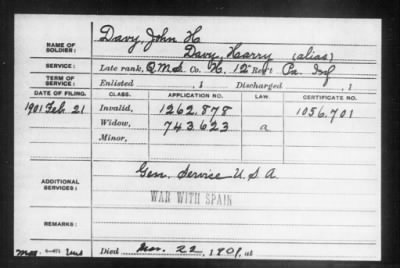 Davy, John H.
NAME OF SOLDIER: Davy, Harry (alias)
SERVICE: Late rank, Q.M.S. Co. H, 12 Reg't Pa. Inf
TERM OF SERVICE: Enlisted , 1 Discharged , 1
DATE OF FILING. CLASS. APPLICATION NO. LAW. CERTIFICATE NO.
1901 Feb. 21 Invalid, 1262,878 1056,701
Widow, 743,623 a
Minor,
ADDITIONAL SERVICES: Gen. Service U.S.A.
WAR WITH SPAIN
REMARKS:
Died Mar. 22, 1901, at